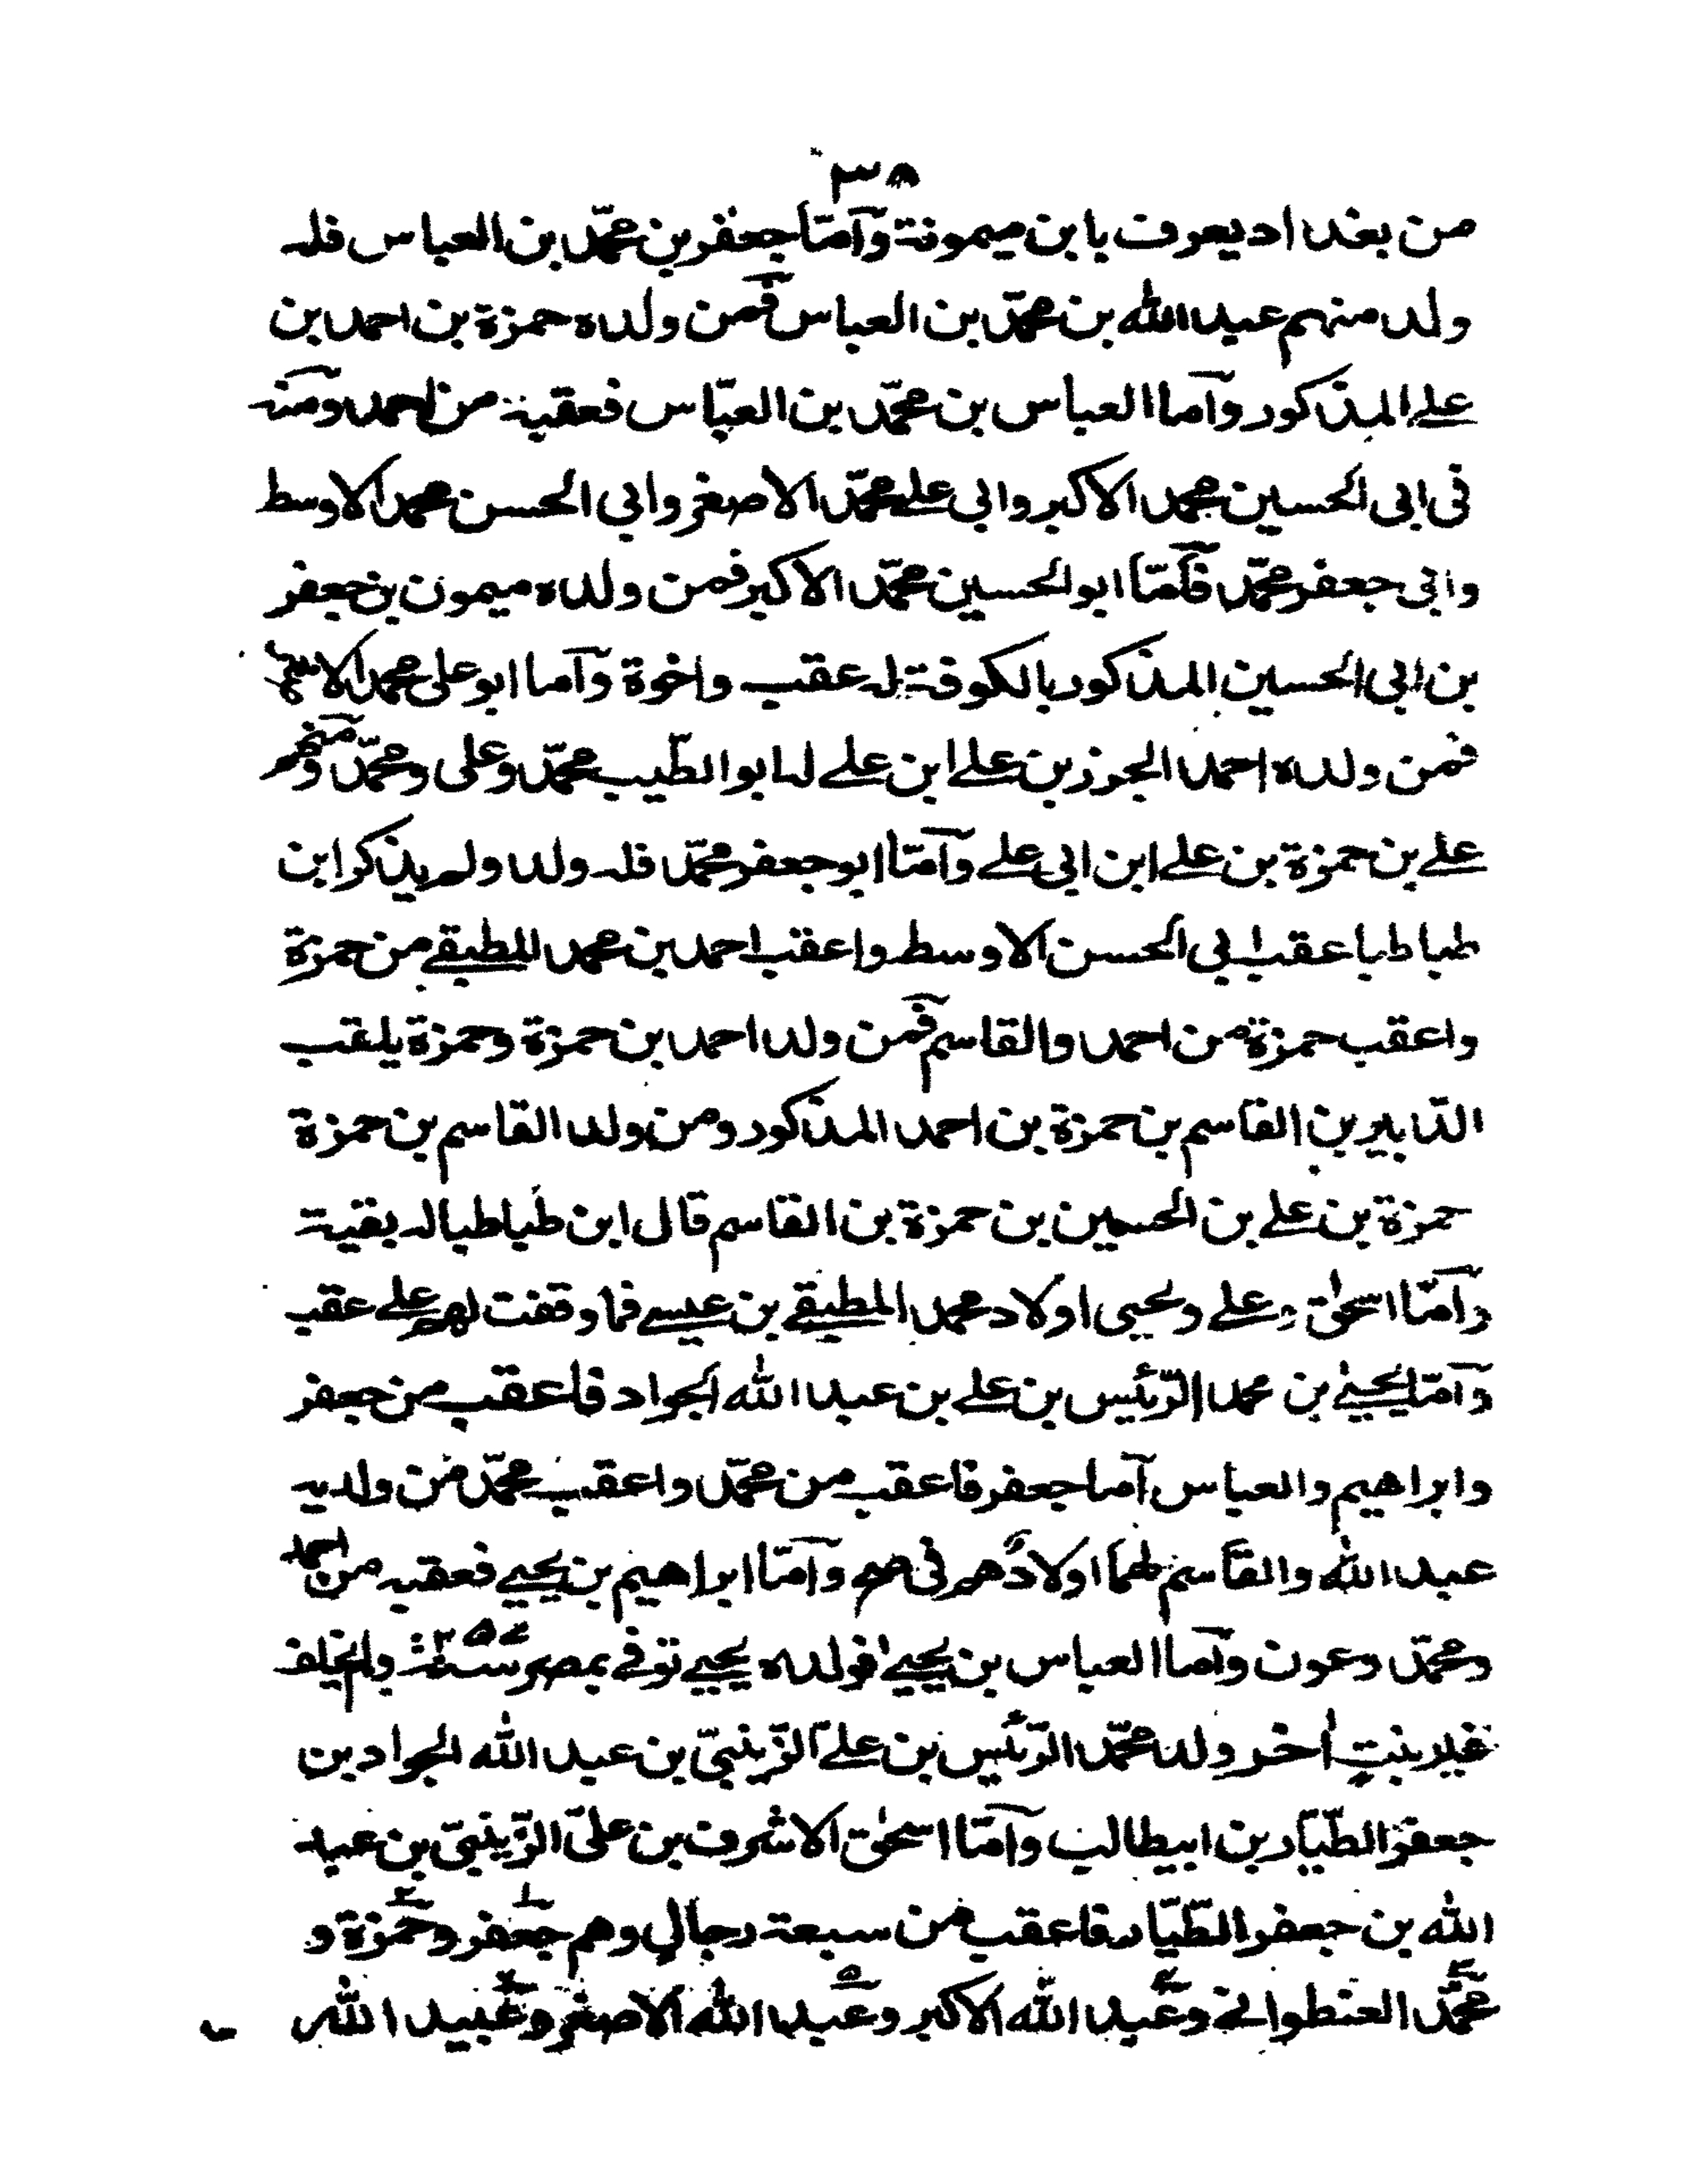 ٣٨
من بغداد يعرف بابن ميمونة وآمّا جعفر بن محمّد بن العباس فله
ولد منهم عبد الله بن محمّد بن العباس فمن ولده حمزة بن احمد بن
علے المذكور وآما العباس بن محمّد بن العبّاس فعقبة من احمد ومنه
فى ابى الحسين محمد الاكبر وابى علے محمّد الاصغر وابي الحسن محمد الاوسط
وابى جعفر محمّد فآمّا ابو الحسين محمّد الاكبر فمن ولده ميمون بن جعفر
بن ابى الحسين المذكور بالكوفة له عقب واخوة وآما ابو على محمد الاصغر
فمن ولده احمد الجرز بن علے ابن علے له ابو الطّيب محمّد وعلى ومحمّد ومنهم
علے بن حمزة بن علے ابن ابى علے وآمّا ابو جعفر محمّد فله ولد ولم يذكر ابن
طباطبا عقب ابى الحسن الاوسط واعقب احمد بن محمد المطبقے من حمزة
واعقب حمزة من احمد والقاسم فمن ولد احمد بن حمزة وحمزة يلقب
الدّابير بن القاسم بن حمزة بن احمد المذكور ومن ولد القاسم بن حمزة
حمزة بن علے بن الحسين بن حمزة بن القاسم قال ابن طباطبا له بقية
وآمّا اسحٰق وعلے ويحيى اولاد محمد المطبقے بن عيسے فما وقفت لهم علے عقب
وآمّا يحيىٰ بن محمد الرّئيس بن علے بن عبد الله الجواد فاعقب من جعفر
وابراهيم والعباس آما جعفر فاعقب من محمّد واعقب محمّد من ولديه
عبد الله والقاسم لهما اولادهم فى وآمّا ابراهيم بن يحيے فعقبه من احمد
ومحمّد وعون وآما العباس بن يحيے فولده يحيے توفے بمصر سنة ولم يخلف
غير بنتٍ اٰخر ولد محمّد الرّئيس بن علے الزّينبىّ بن عبد الله الجواد بن
جعفر الطّيّار بن ابيطالب وآمّا اسحٰق الاشرف بن علىّ الزّينبىّ بن عبد
الله بن جعفر الطّيّار فاعقب من سبعة رجالٍ وهم جعفر وحمزة و
محمّد العنطوانے وعبد الله الاكبر وعبد الله الاصغر وعبيد الله